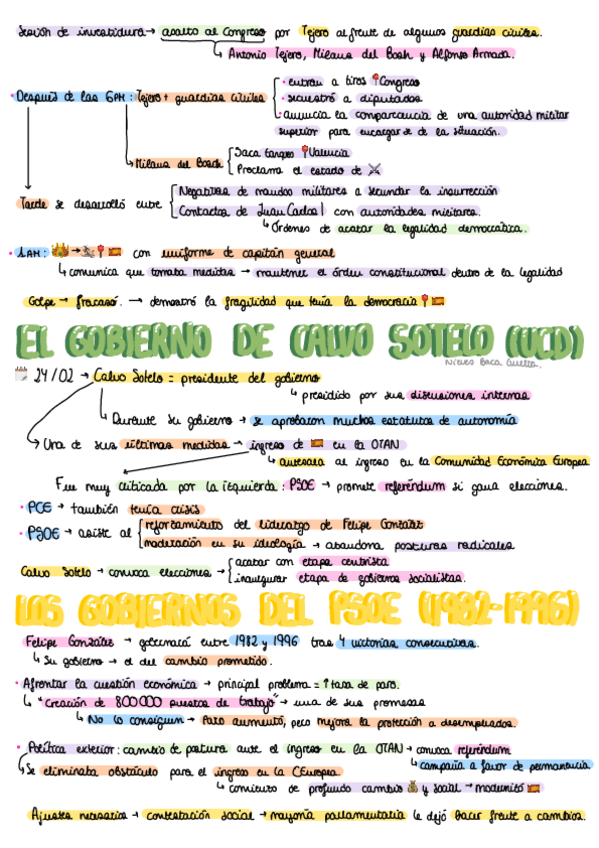 Sesión de investidura → asalto al Congreso por Tejero al frente de algunos guardias civiles.
↳ Antonio Tejero, Milans del Bosh y Alfonso Armada.
• entran a tiros 📍Congreso
• Después de las 6PM: Tejero + guardias civiles
• secuestró a diputados
• anuncia la comparecencia de una autoridad militar
superior para encargarse de la situación.
Saca tanques 📍Valencia
→ Milans del Bosch
Proclama el estado de ⚔️
Negativas de mandos militares a secundar la insurrección
Tarde se desarrolló entre
Contactos de Juan Carlos I con autoridades militares.
↳ Órdenes de acatar la legalidad democrática.
• 1AM: 👑 → 📍🇪🇸 con uniforme de capitán general
↳ comunica que tomaba medidas → mantener el órden constitucional dentro de la legalidad
Golpe → fracasó. → demostró la fragilidad que tenía la democracia 📍🇪🇸
EL GOBIERNO DE CALVO SOTELO (UCD)
Nieves Baca
24/02 → Calvo Sotelo = presidente del gobierno
↳ presidido por sus discusiones internas
↳ Durante su gobierno → se aprobaron muchos estatutos de autonomía
→ Una de sus últimas medidas → ingreso de 🇪🇸 en la OTAN
↳ antesala al ingreso en la Comunidad Económica Europea
Fue muy criticada por la izquierda: PSOE → promete referéndum si gana elecciones.
• PCE → también tenía crisis
• PSOE → asiste al
reforzamiento del liderazgo de Felipe González
moderación en su ideología → abandona posturas radicales
Calvo Sotelo → convoca elecciones →
acabar con etapa centrista
inaugurar etapa de gobiernos socialistas.
LOS GOBIERNOS DEL PSOE (1982-1996)
Felipe González → gobernará entre 1982 y 1996 tras 4 victorias consecutivas.
↳ Su gobierno → el del cambio prometido.
• Afrontar la cuestión económica → principal problema = ↑ tasa de paro.
↳ "Creación de 800000 puestos de trabajo" → una de sus promesas
↳ No lo consiguen → Paro aumentó, pero mejora la protección a desempleados.
• Política exterior: cambio de postura ante el ingreso en la OTAN → convoca referéndum
↳ campaña a favor de permanencia
↳ Se eliminaba obstáculo para el ingreso en la CEuropea
↳ comienzo de profundo cambio 💰 y social → modernizó 🇪🇸
Ajustes necesarios → contestación social → mayoría parlamentaria le dejó hacer frente a cambios.